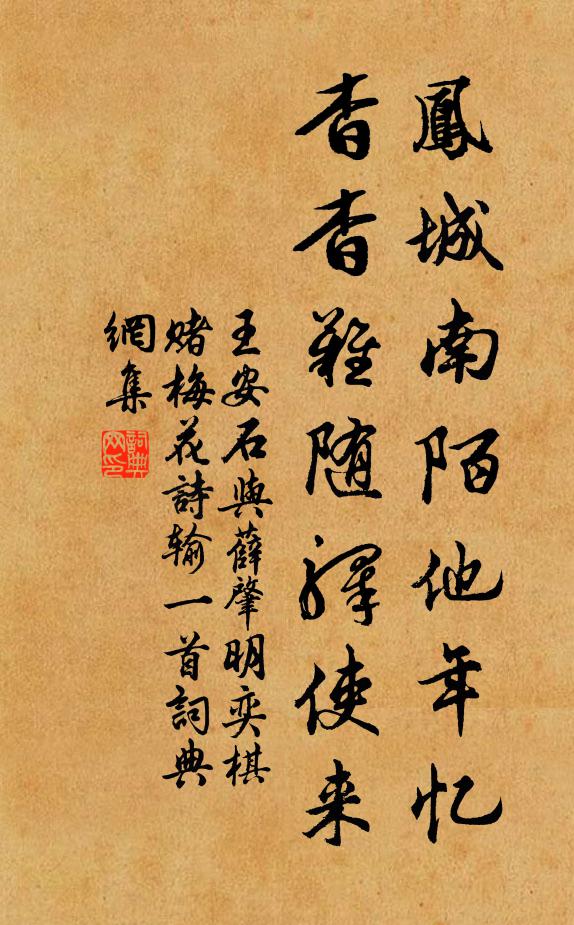 鳳城南陌他年忆
杳杳難随驛使来
王安石與薛肇明奕棋
賭梅花詩输一首詞典
網集
詞典
网印